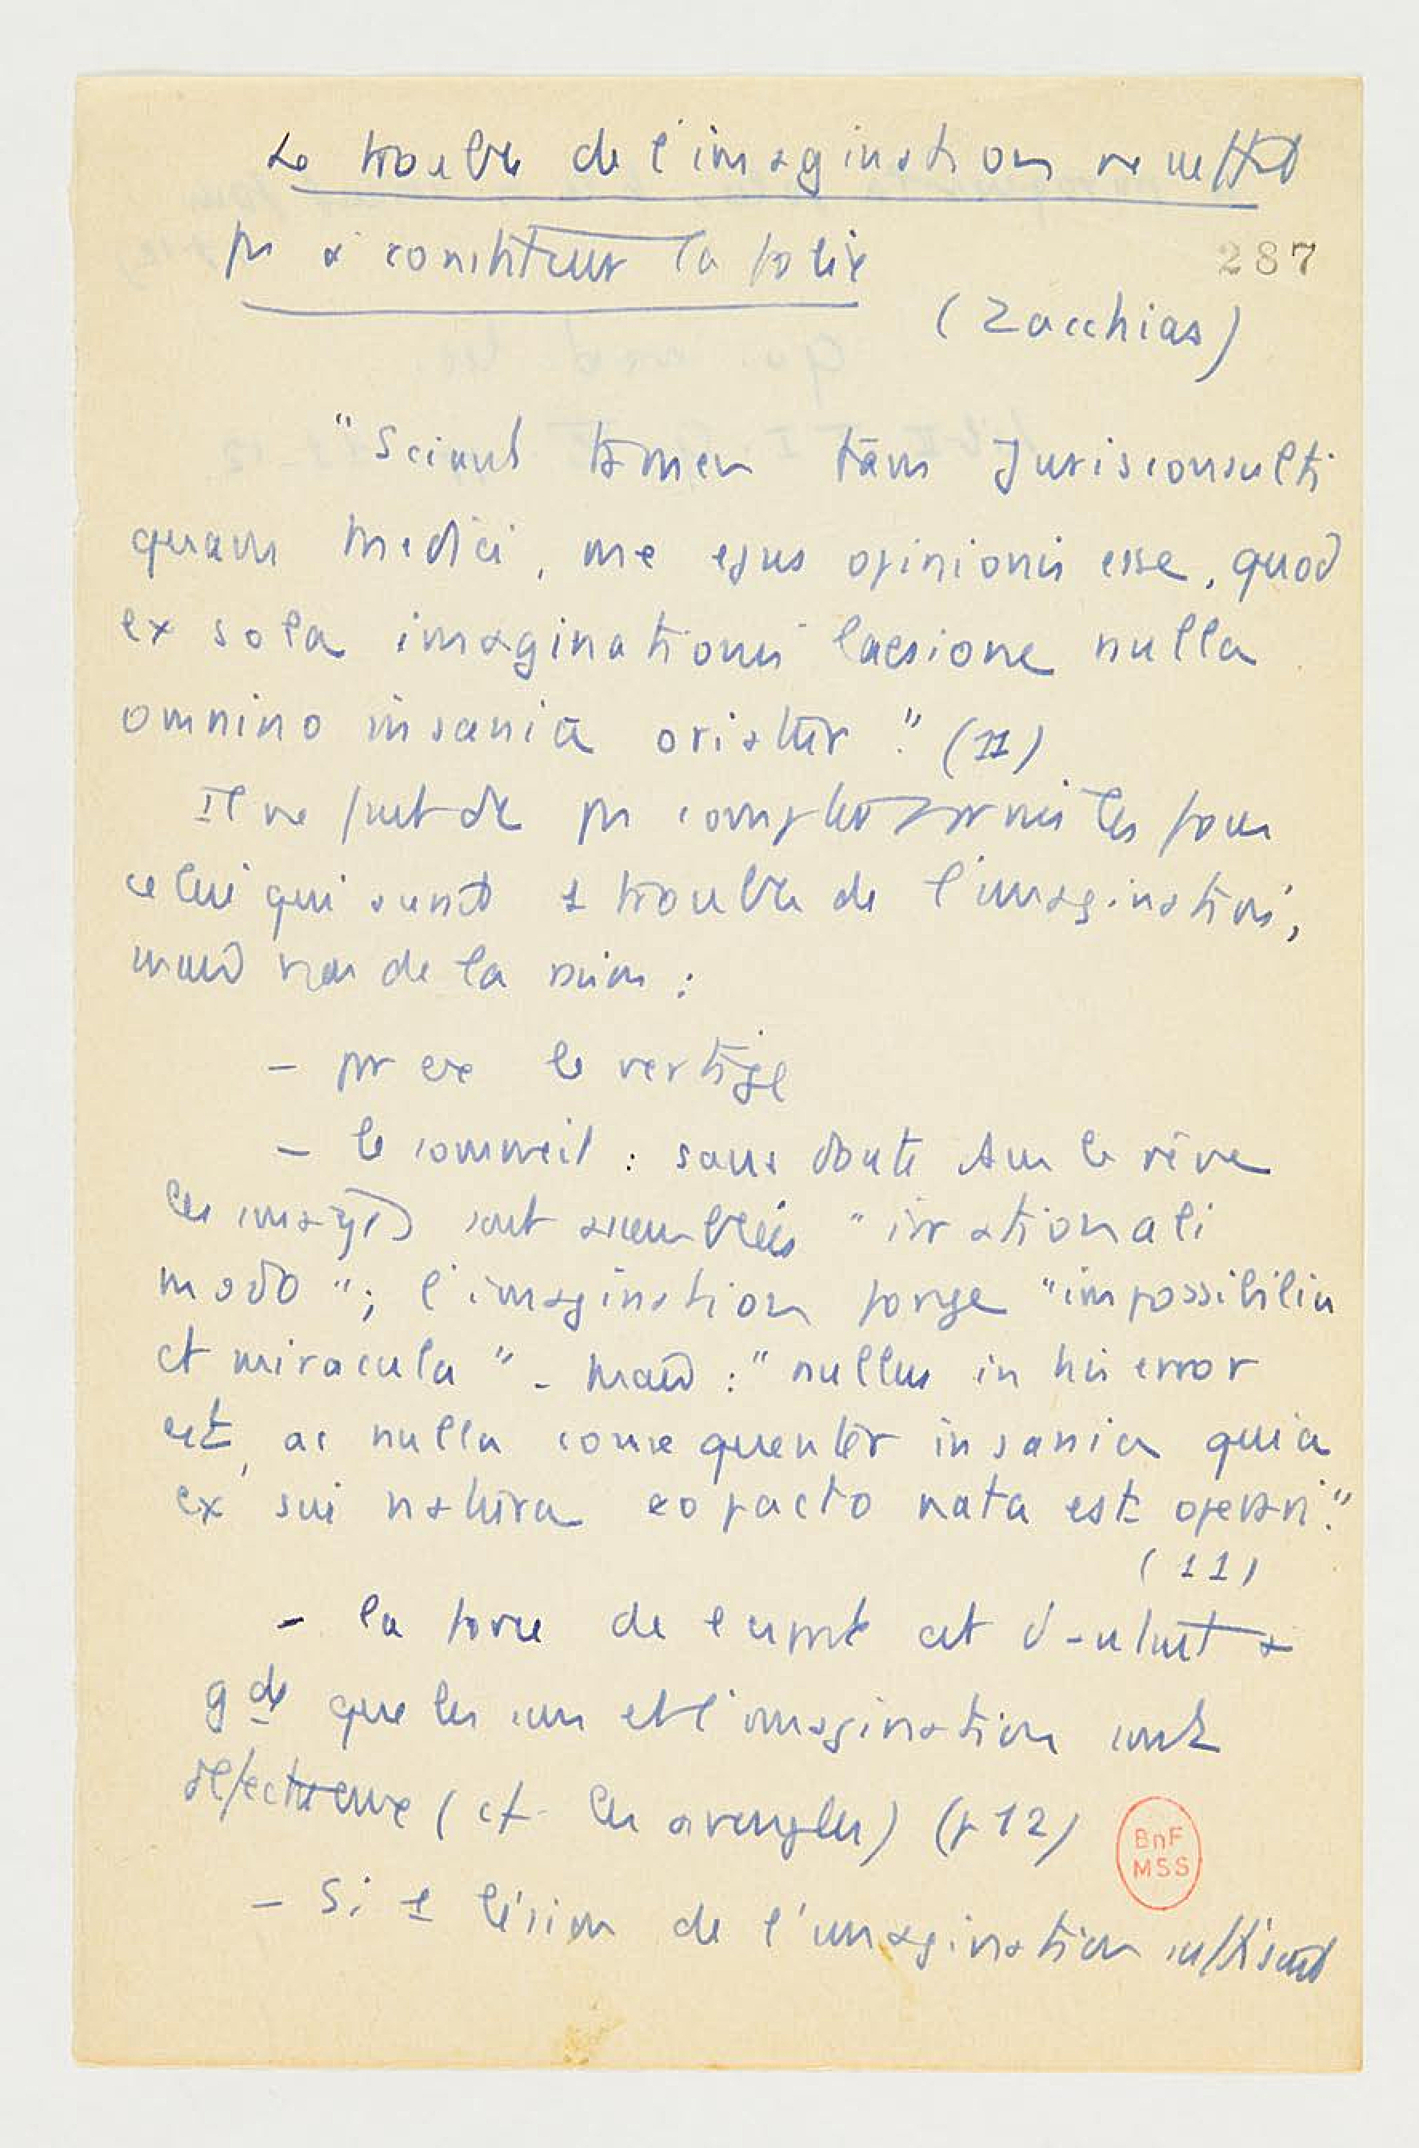 Le trouble de l'imagination ne suffit
pas à constituer la folie
287
(Zacchias)
"Sciant tamen tam Jurisconsulti
quam Medici, me ejus opinionis esse, quod
ex sola imaginationis laesione nulla
omnino insania oriatur." (11)
Il ne peut être pas pour
celui qui trouble de l'imagination,
mais non de la raison :
- par ex le vertige
- le sommeil : sans doute dans le rêve
les images sont assemblées "irrationali
modo"; l'imagination forge "impossibilia
et miracula" - Mais : "nullus in his error
est, ac nulla consequenter insania quia
ex sui natura eo pacto nata est operari."
(11)
- la force de l'esprit est d'autant +
gde que les sens et l'imagination sont
défectueux (cf. les aveugles) (p 12)
BnF
MSS
- Si 1 lésion de l'imagination suffisait